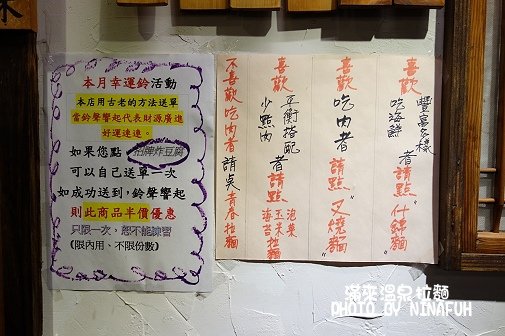 本月幸運鈴活動
本店用古老的方法送單
當鈴聲響起代表財源廣進
好運連連。
如果您點 招牌炸豆腐
可以自己送單一次
如成功送到，鈴聲響起
則此商品半價優惠
只限一次，恕不能練習
(限內用、不限份數)
喜歡 豐富多樣 吃海鮮 者請點"什錦麵"
喜歡吃肉者請點"叉燒麵"
喜歡 平衡搭配 少點肉 者請點 泡菜 玉米拉麵 海苔
不喜歡吃肉者請吳青春拉麵
滿來溫泉拉麵
PHOTO BY NINAFUH